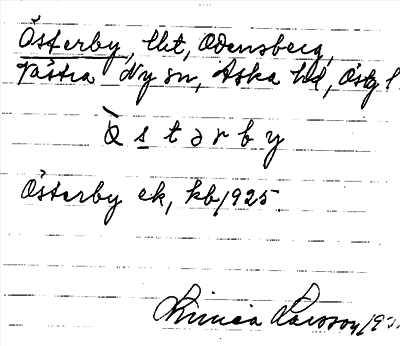 Österby, lht, Odensberg,
Västra Ny sn, Aska hd, Östg l
Ò̀ s t ə r b y
Österby ek, kb 1925.
Linnéa Larsson 19